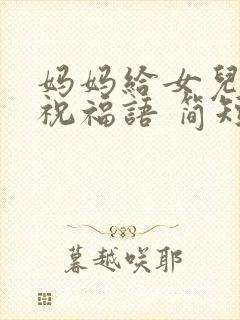 妈妈給女兒
祝福語 简短
暮越咲耶